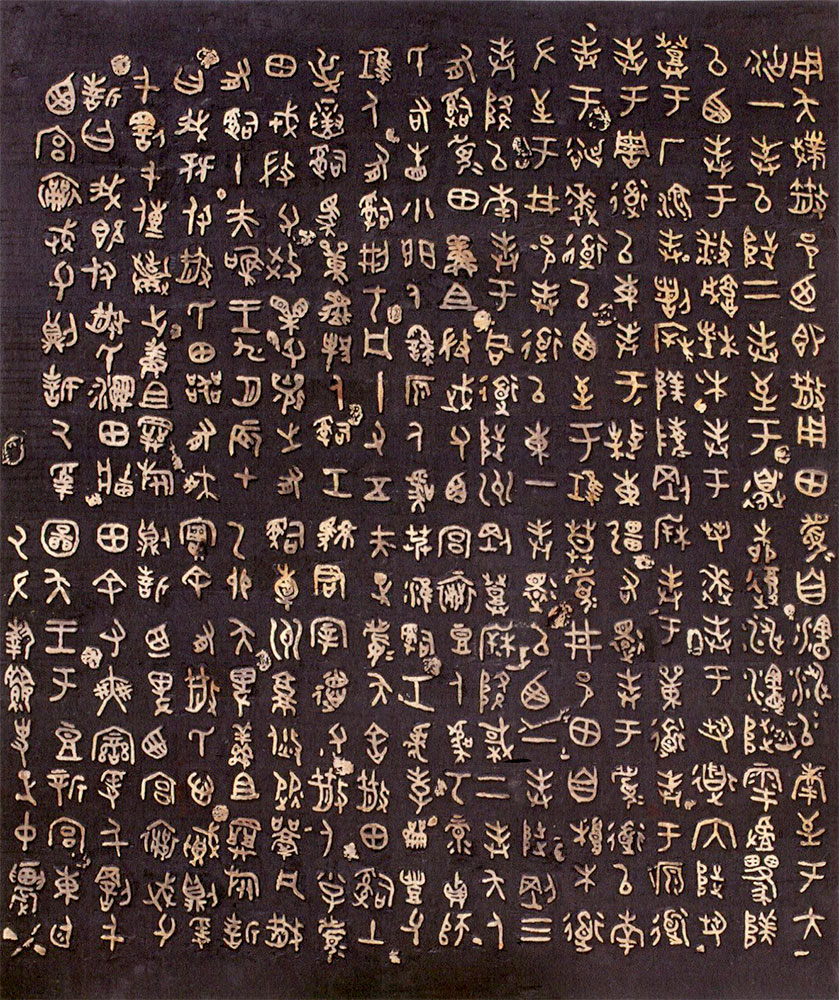 用夨撲散邑乃即散用田眉自瀗涉以南至于大
沽一封以陟二封至于邊柳復涉瀗陟雩陕
以西封于播城楮木封于芻逨封于芻道內陟芻
登于厂湶封剖柝陕陵剛柝封于道封于原道
封于周道以東封于東疆右還封于眉道以南
封于逨道以西至于鳿莫眉井邑田自根木道
左至于井邑封道以東一封還以西一封陟剛三
封降以南封于同道陟州剛登柝降棫二封夨人
有𤔲眉田鮮且微武父西宮襄豆人虞丂彔貞師
氏右眚小門人繇原人虞艿淮𤔲工虎孝龠豊父
鳿人有𤔲刑丂凡十又五夫正眉夨舍散田𤔲土
逆寅𤔲馬單堒邦人𤔲工駷君宰德父散人小子眉
田戎微父效果父襄之有𤔲橐州就焂從凡散
有𤔲十夫唯王九月辰才乙卯夨卑鮮且旅誓
曰我既付散氏田器有爽實余有散氏心賊則爰
千罰千傳棄之鮮且旅則誓乃卑西宮襄武父
誓曰我既付散氏濕田牆田余有爽變爰千罰千
西宮襄武父則誓厥受圖夨王于豆新宮東廷
厥左執繮史正中農